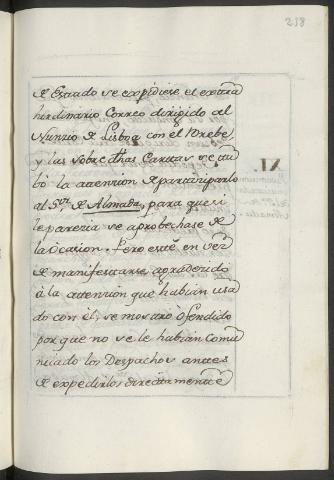 218
de Estado se expidiese el extraor
hordinario Correo dirigido al
Nunzio de Lisboa con el Brebe
y las sobre dhas Cartas se tu
bò la attencion de participarlo
al Sr. de Almada, para que si
le parecia se aprobechase de
la ocasion. Pero este en vez
de manifestarse agradecido
à la attencion que habian usa
do con èl, se mostrò ofendido
por que no se le habian comu
nicado los Despachos antes
de expedirlos directamente
XI.